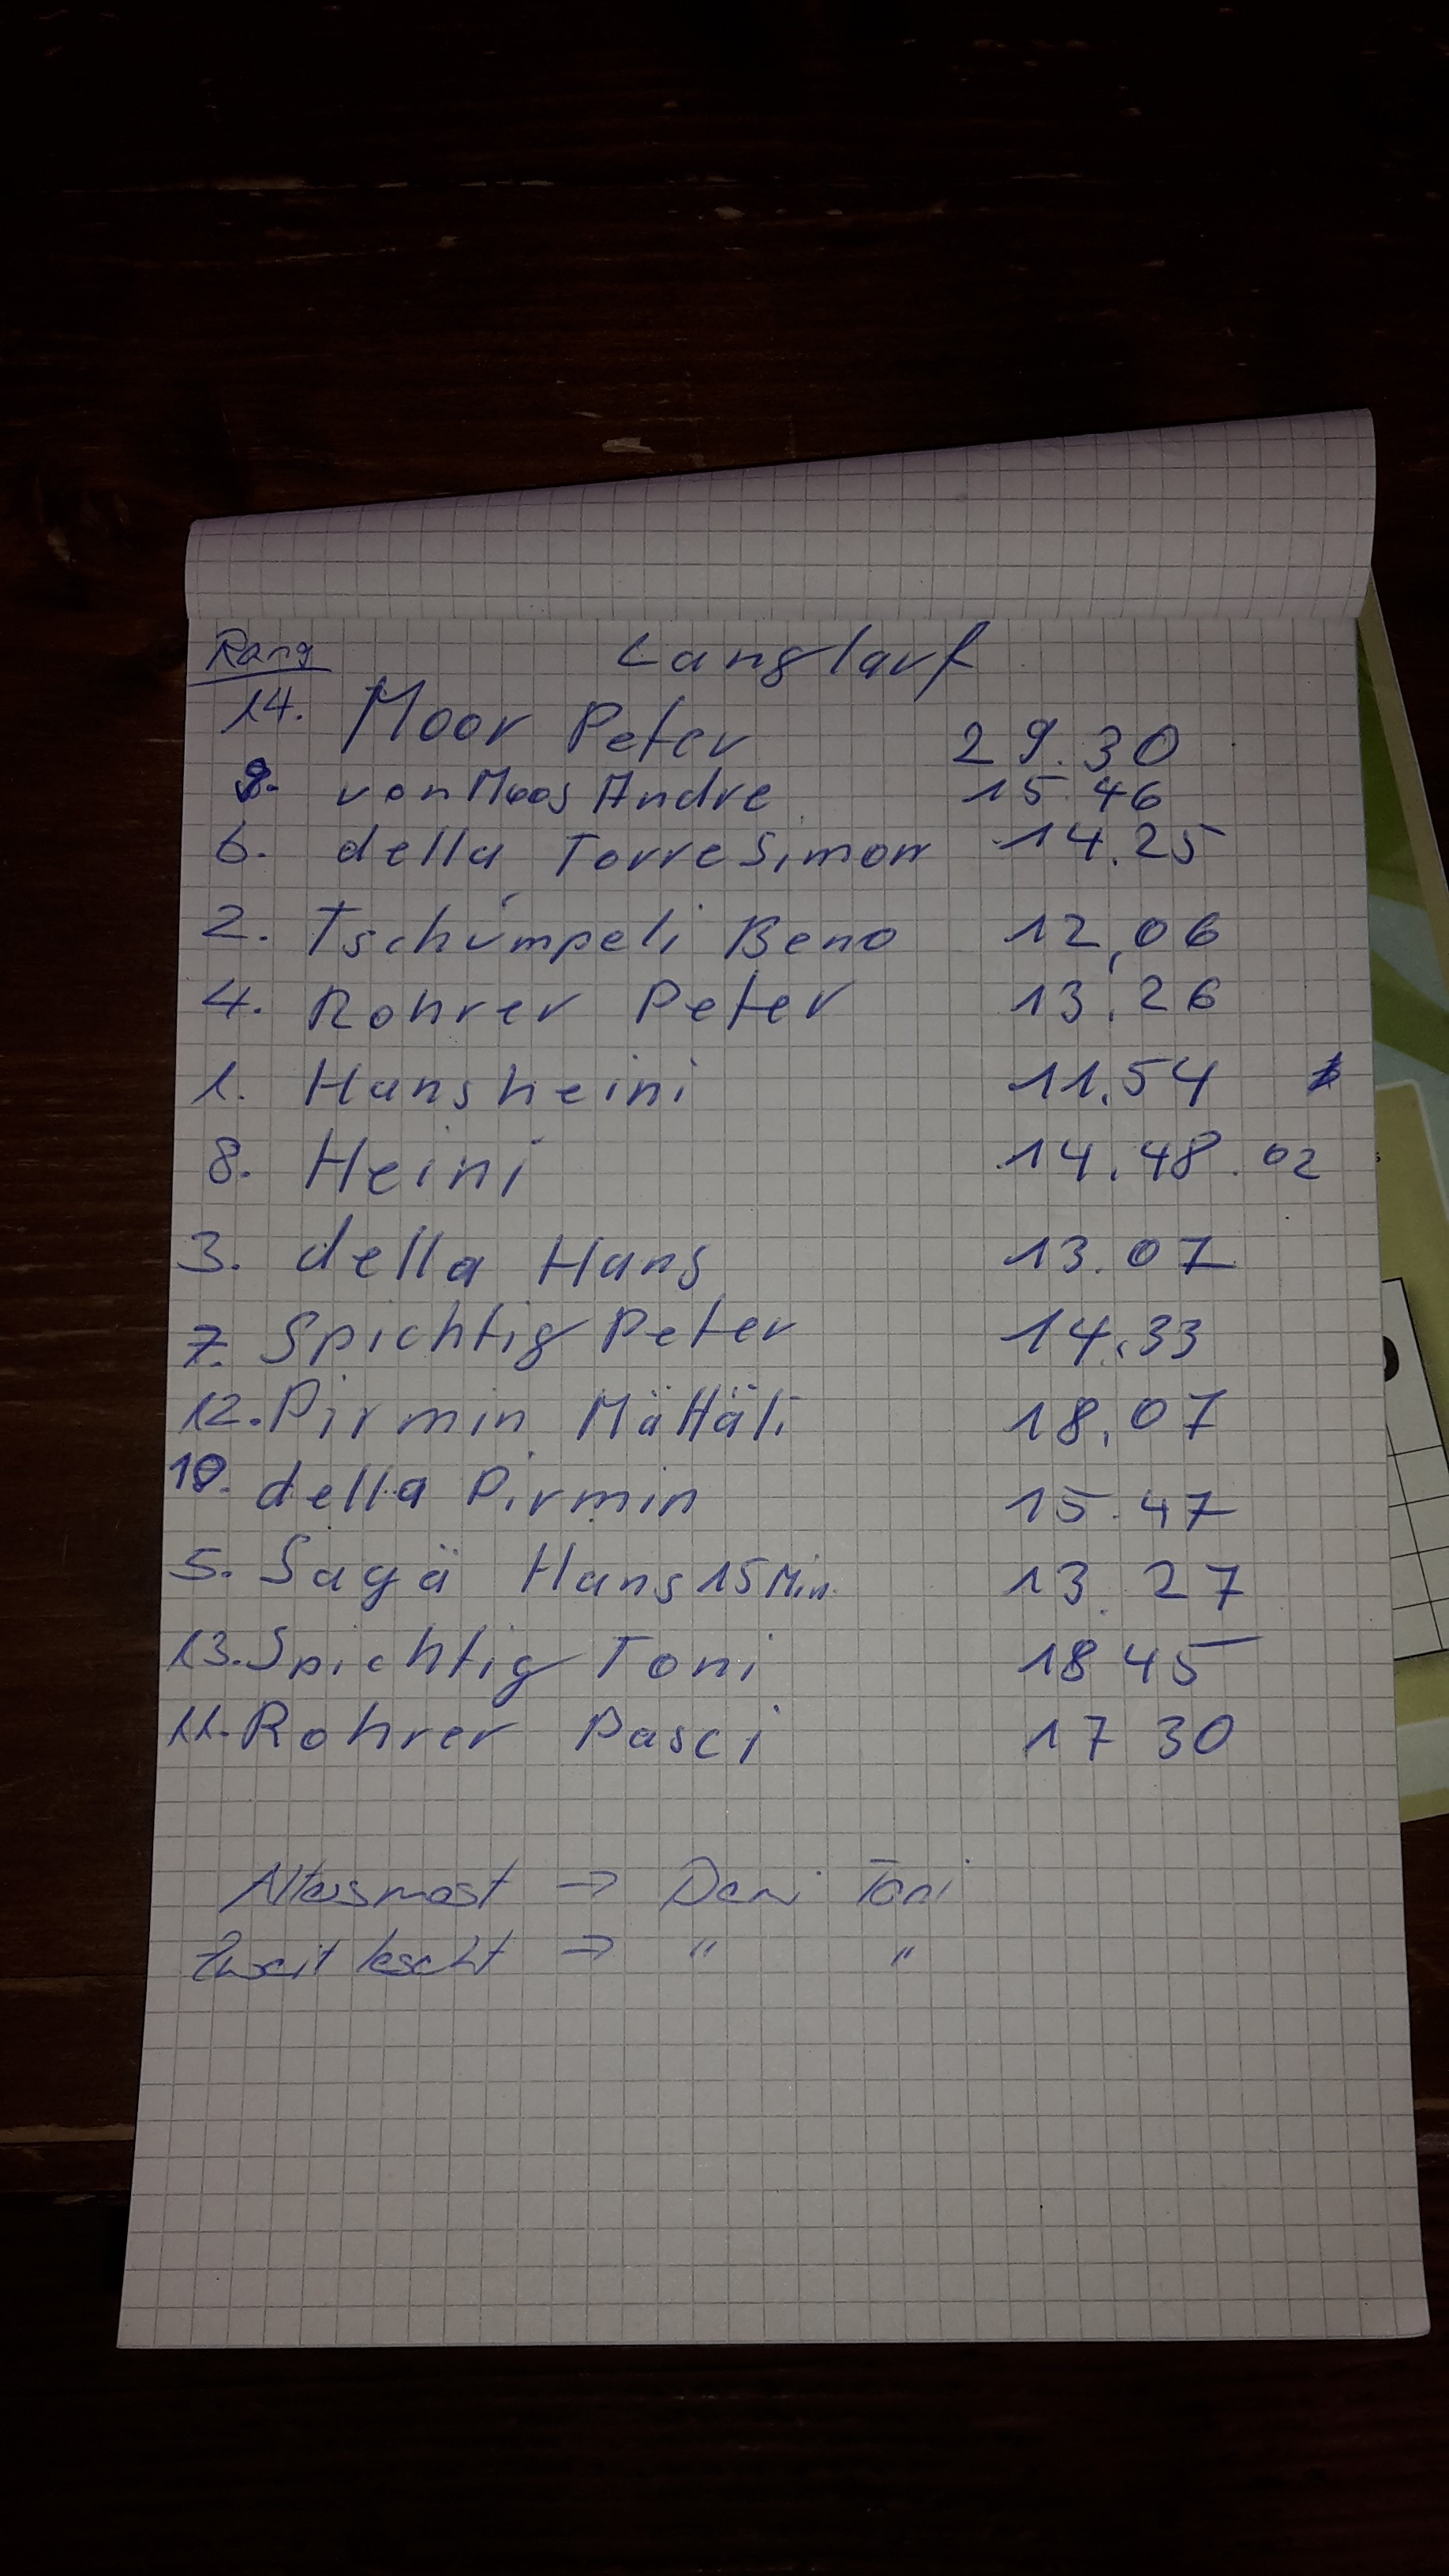 Rang Langlauf
14. Moor Peter 29.30
9. von Moos Andre 15.46
6. della Torre Simon 14.25
2. Tschümpeli Beno 12,06
4. Rohrer Peter 13.26
1. Hansheini 11.54
8. Heini 14.48.02
3. della Hans 13.07
7. Spichtig Peter 14.33
12. Pirmin Mättäli 18.07
10. della Pirmin 15.47
5. Sagä Hans 15 Min. 13.27
13. Spichtig Toni 18 45
11. Rohrer Pasci 17 30
Altersmost → Toni
Zweit lescht → " "